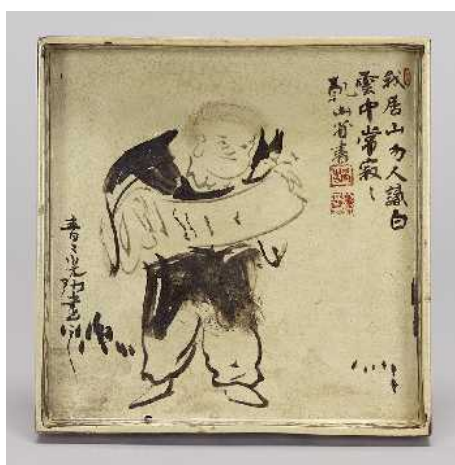 我居山勿人識白
雲中常寂々
乾山省書
青々光琳畫之